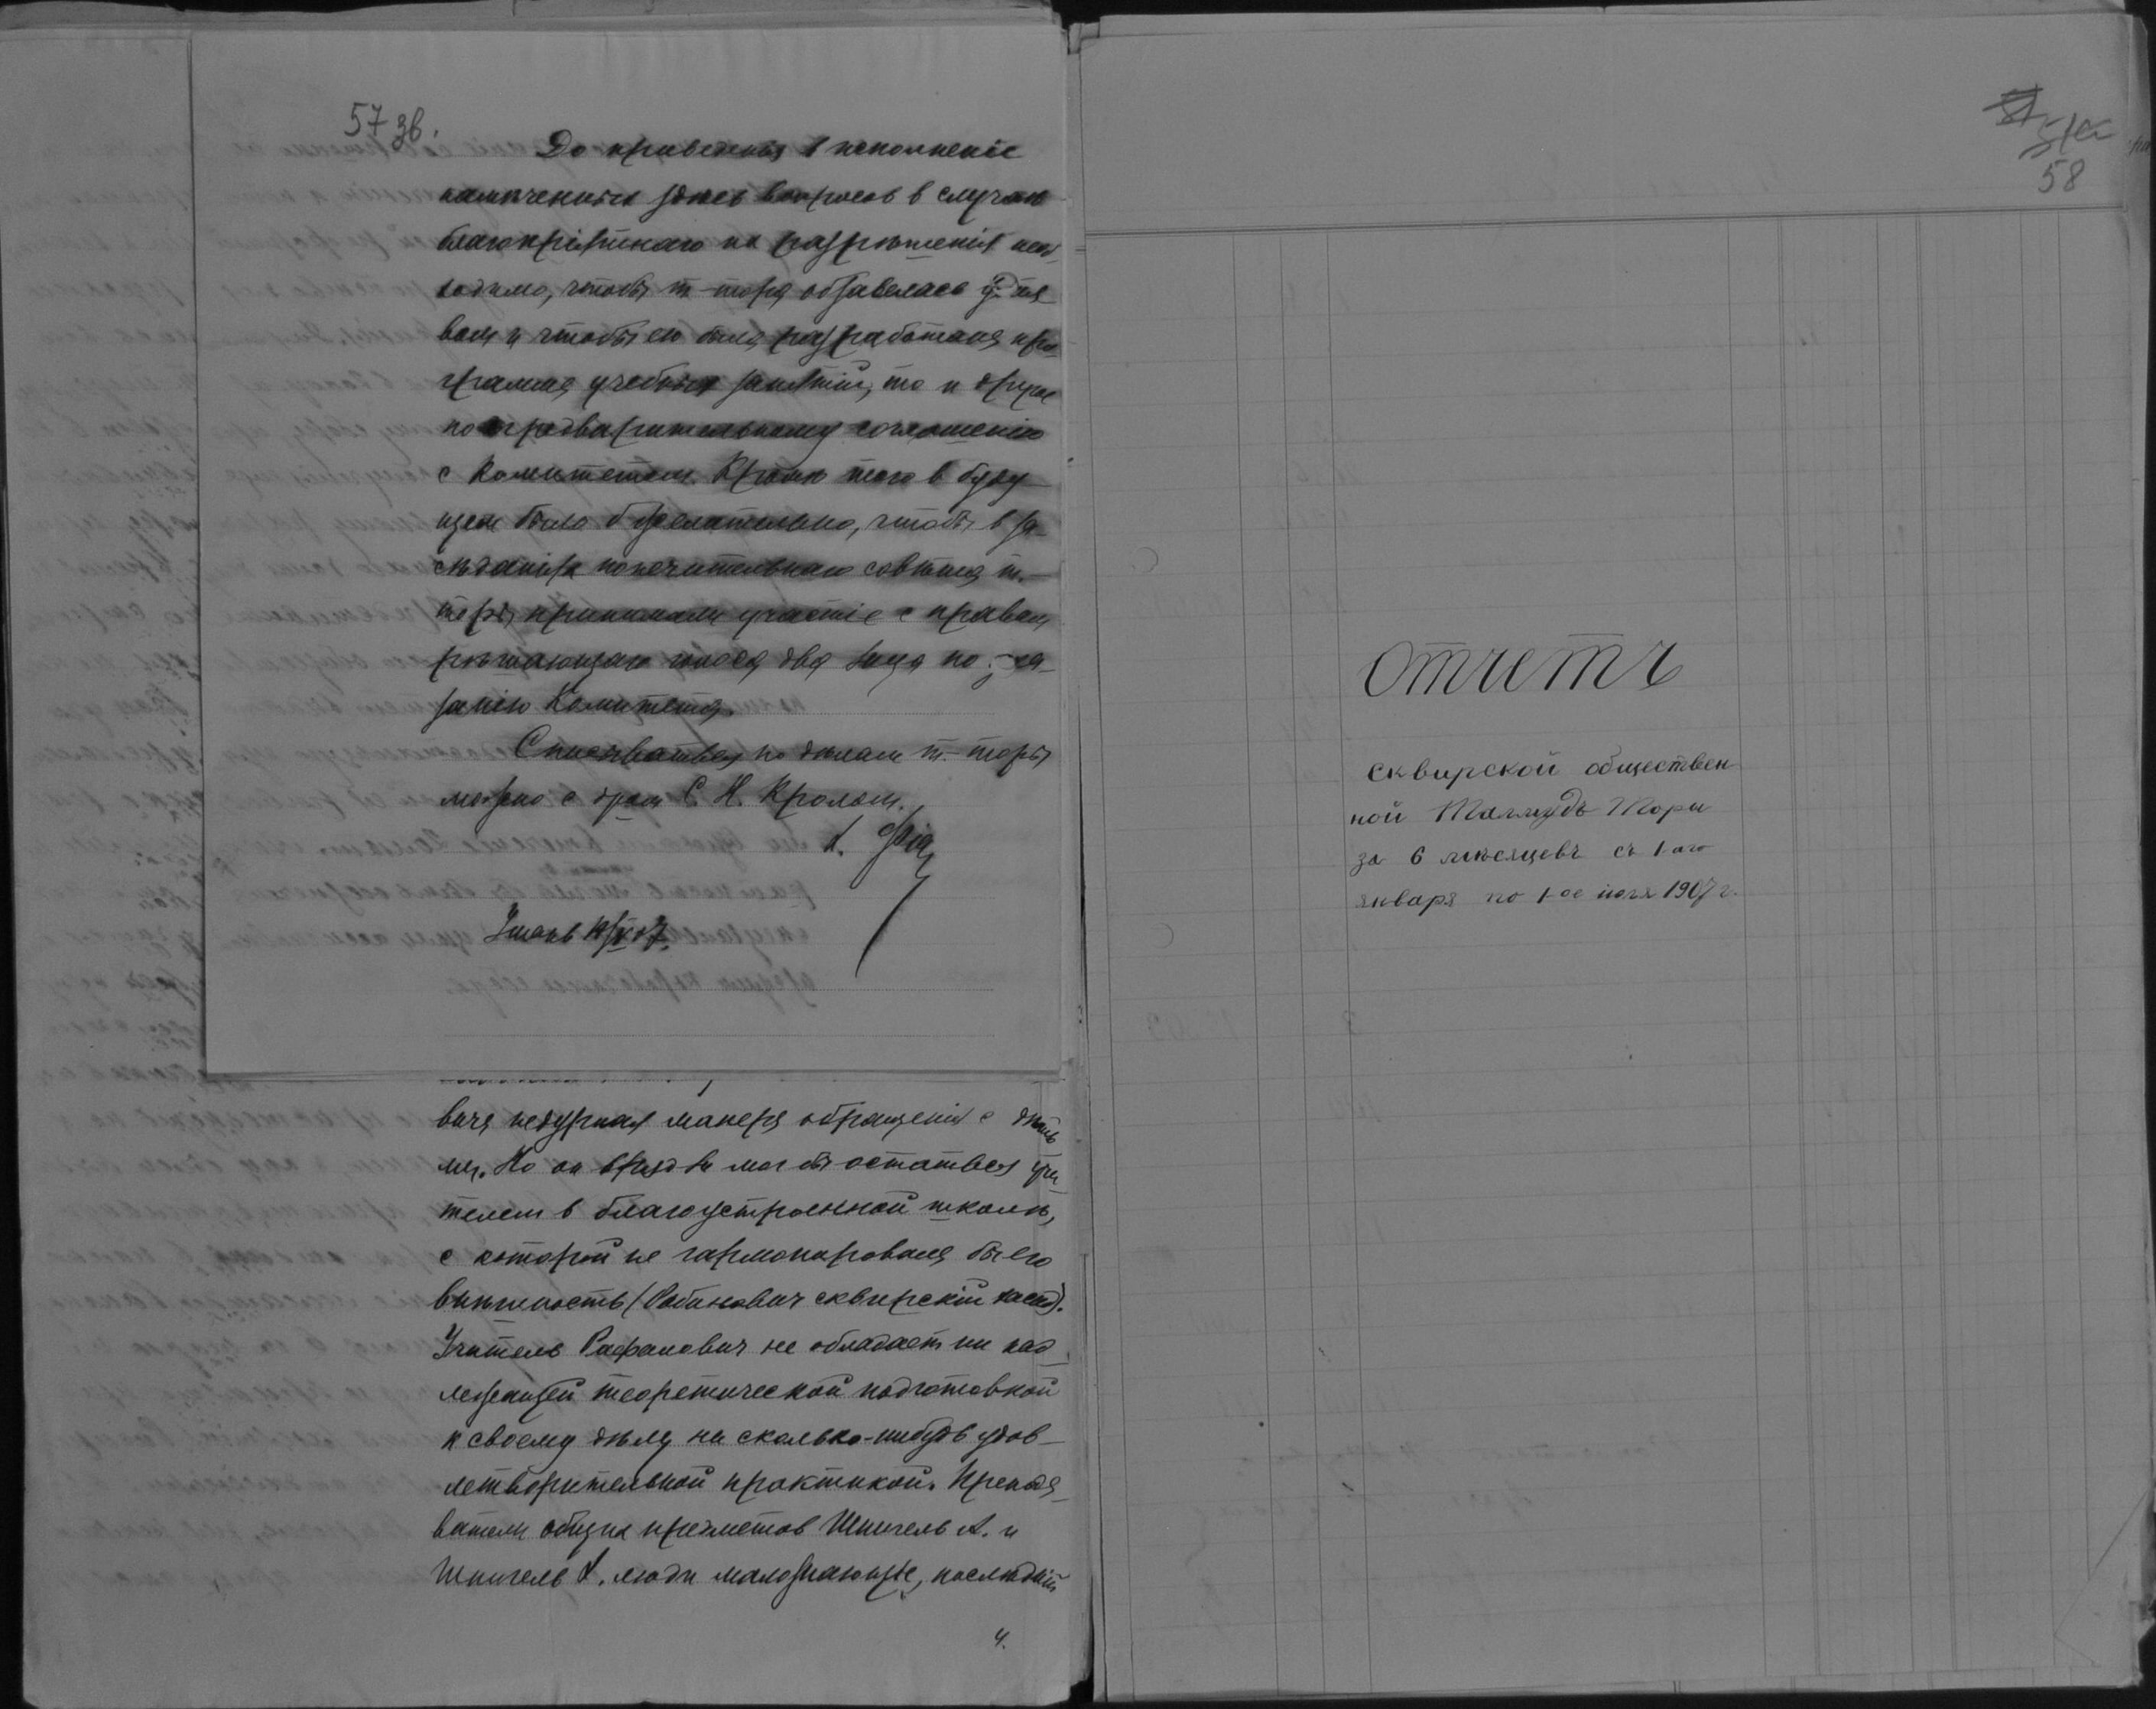 57 зв.
До приведенія в исполненіе
намѣченных здѣсь вопросов в случаѣ
благопріятнаго их разрѣшенія необ-
ходимо, чтобы т-тора обзавелась
вом и чтобы ею была разработана про-
грамма учебных занятій, то и другое
по предварительному соглашенію
с Комитетом. Кромѣ того в буду-
щем было б желательно, чтобы в за-
сѣданіях попечительнаго совѣта т.-
торы принимали участіе с правом
рѣшающаго голоса два лица по ука-
занію Комитета.
Списываться по дѣлам т.-торы
можно с дром С. Н. Кролом.
Умань
вича недурная манера обращенія с дѣть
ми. Но он вряд ли мог бы остаться учи
телем в благоустроенной школѣ,
с которой не гармонировала бы его
внѣшность (Рабинович сквирскій хасид).
Учитель Рафалович не обладает ни над-
лежащей теоретической подготовкой
к своему дѣлу ни сколько-нибудь удов-
летворительной практикой. Препода-
ватели общих предметов Шпигель А. и
Шпигель Л. люди малознающіе, послѣдній
4.
58
Отчетъ
Сквирской обществен
ной Талмудъ Торы
за 6 мѣсяцевъ съ 1-аго
января по 1-ое іюля 1907 г.